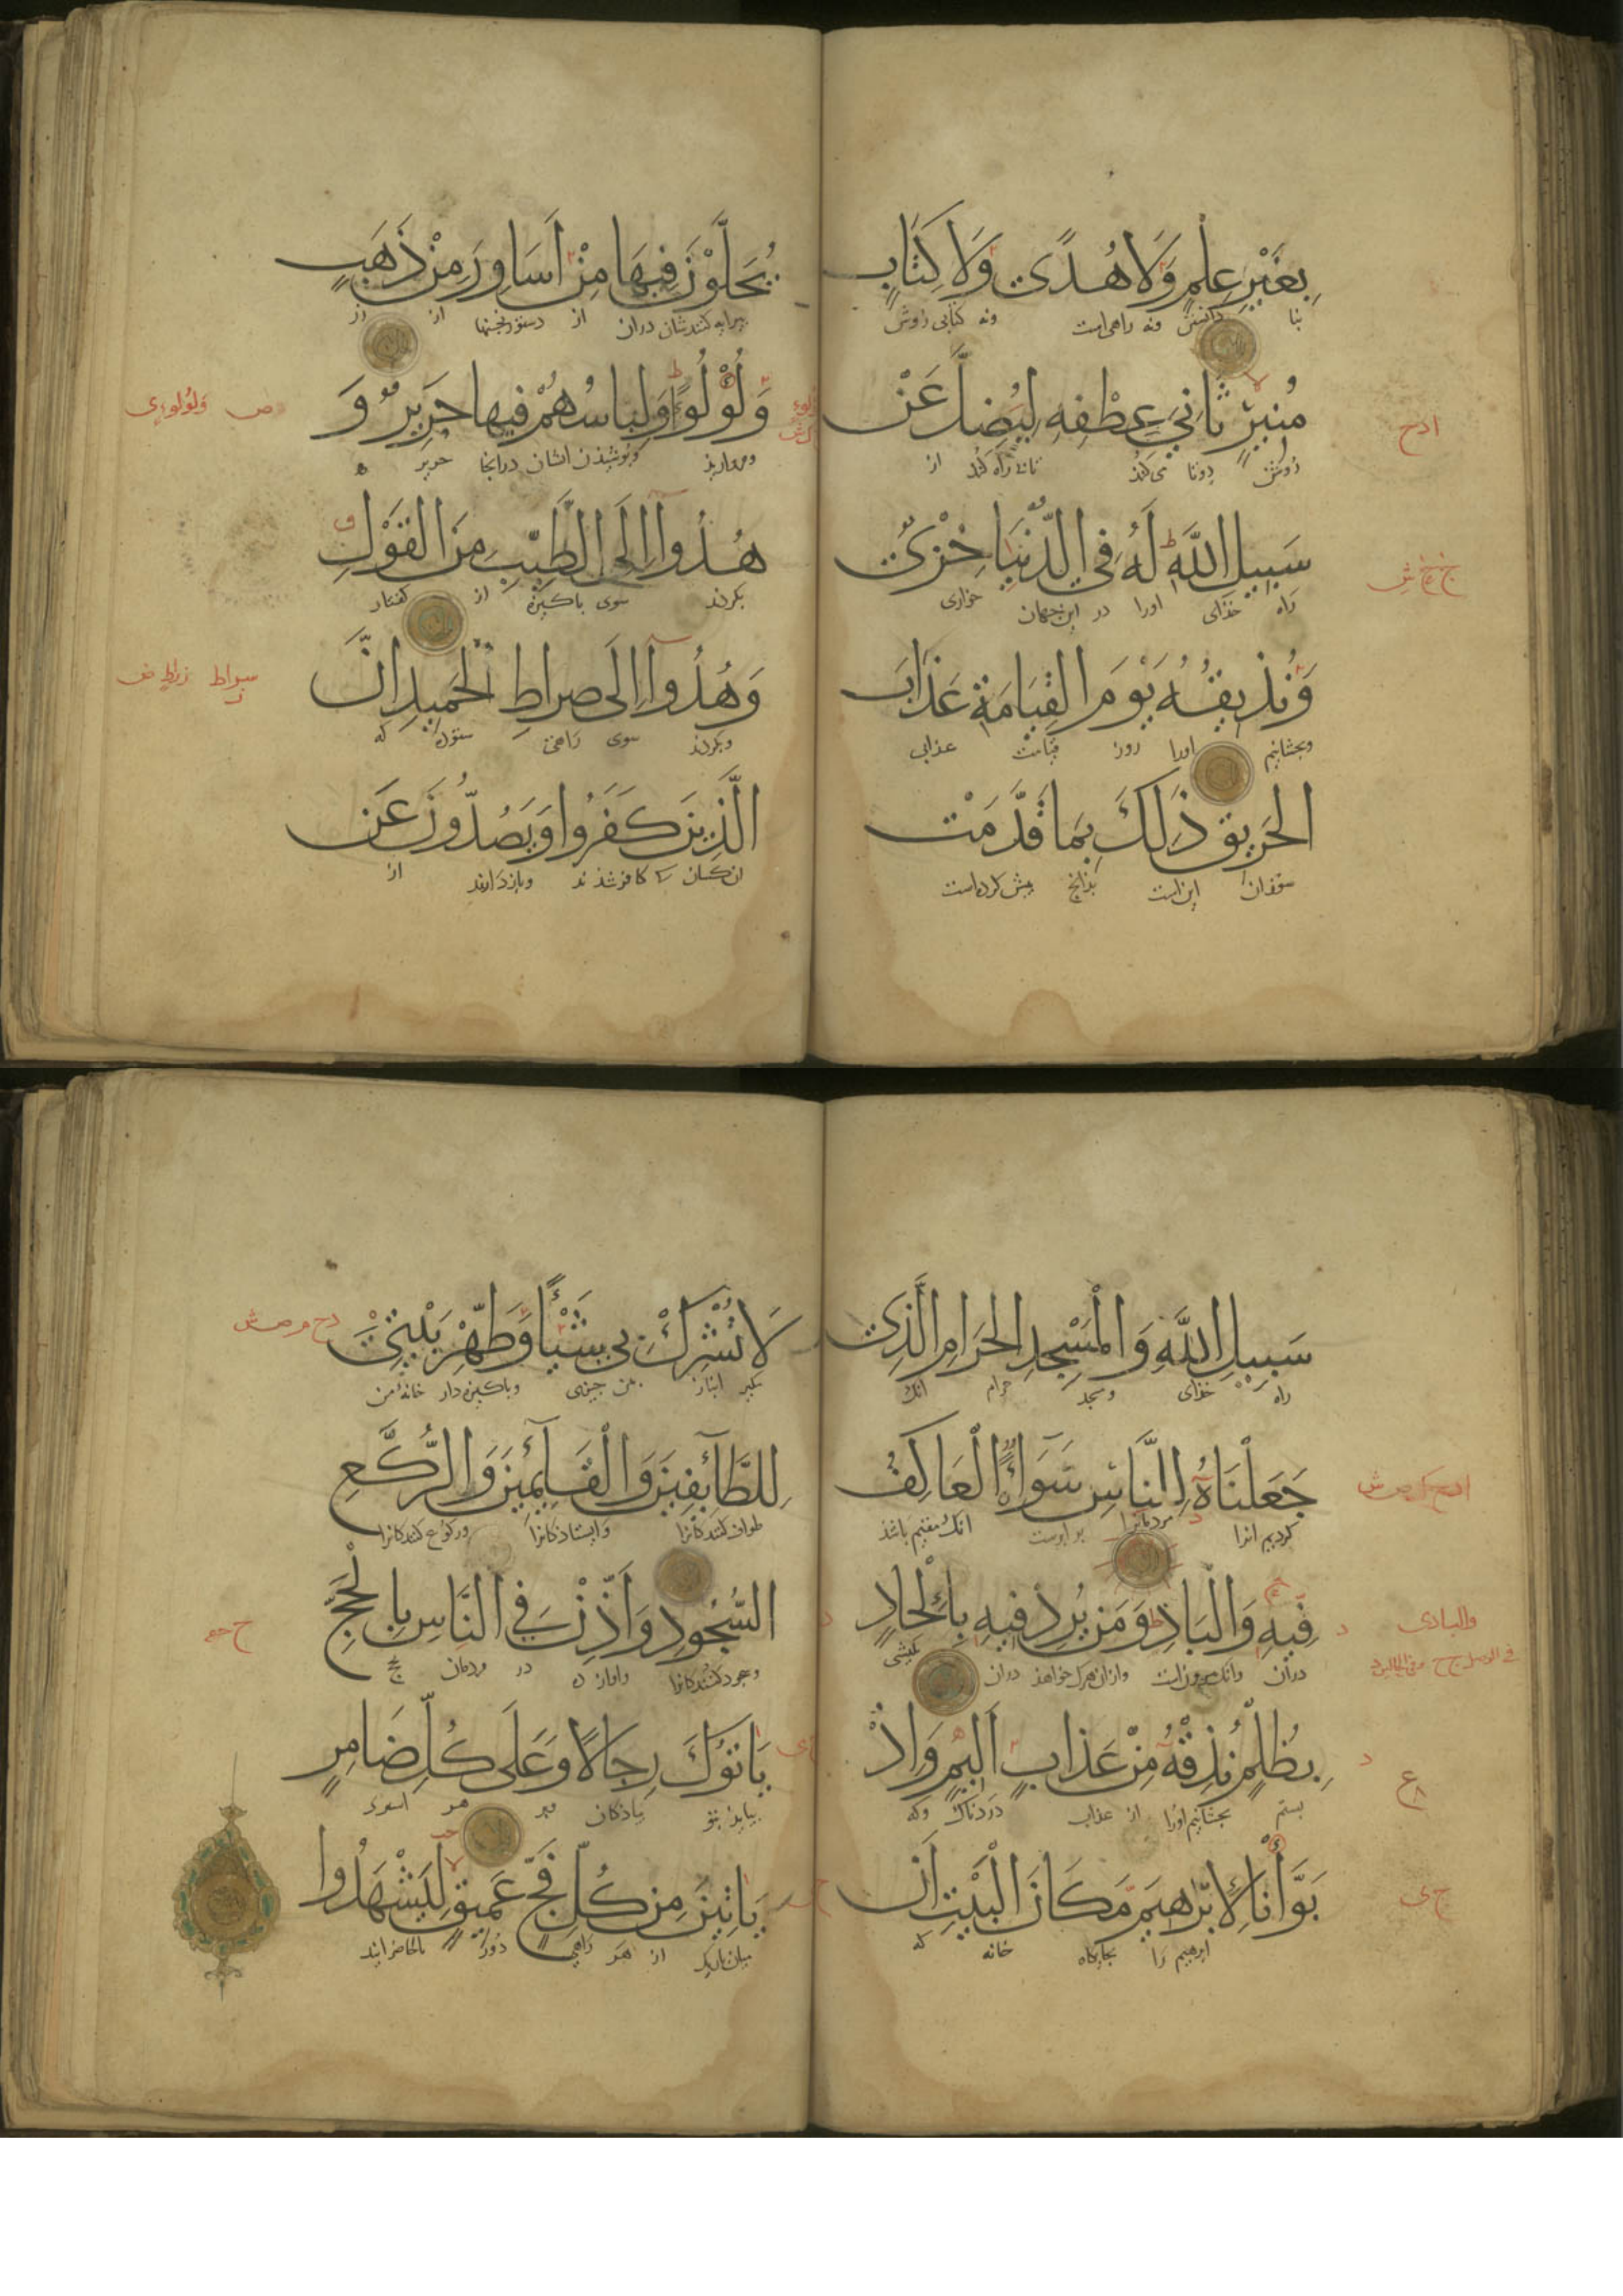 بِغَيْرِ عِلْمٍ وَلَا هُدًى وَلَا كِتَابٍ
دانش ونه راهی است ونه کتابی روشن
مُنِيرٍ ثَانِيَ عِطْفِهِ لِيُضِلَّ عَنْ
روشن دوتا می‌کند از
سَبِيلِ اللَّهِ لَهُ فِي الدُّنْيَا خِزْيٌ
راه خذای اورا در این جهان خواری
وَنُذِيقُهُ يَوْمَ الْقِيَامَةِ عَذَابَ
وبچشانیم اورا روز قیامت عذابی
الْحَرِيقِ ذَلِكَ بِمَا قَدَّمَتْ
سوزان این است بذانچ پیش کرده است
يُحَلَّوْنَ فِيهَا مِنْ أَسَاوِرَ مِنْ ذَهَبٍ
پیرایه کنندشان دران از دستورنجنها از زر
وَلُؤْلُؤًا وَلِبَاسُهُمْ فِيهَا حَرِيرٌ وَ
ومروارید وپوشیذن ایشان درانجا حریر
هُدُوا إِلَى الطَّيِّبِ مِنَ الْقَوْلِ
بکردند سوی باکیزه از کفتار
وَهُدُوا إِلَى صِرَاطِ الْحَمِيدِ إِنَّ
وبکردند سوی راهی ستوده که
الَّذِينَ كَفَرُوا وَيَصُدُّونَ عَنْ
ان کسان کی کافر شذند وبازدارند از
سَبِيلِ اللَّهِ وَالْمَسْجِدِ الْحَرَامِ الَّذِي
راه خذای ومسجد حرام انک
جَعَلْنَاهُ لِلنَّاسِ سَوَاءً الْعَاكِفُ
کردیم انرا مردمانرا برابرست انک مقیم باشذ
فِيهِ وَالْبَادِ وَمَنْ يُرِدْ فِيهِ بِإِلْحَادٍ
دران وانک بیرون است وازان هرک خواهذ دران
بِظُلْمٍ نُذِقْهُ مِنْ عَذَابٍ أَلِيمٍ وَإِذْ
بستم بچشانیم اورا از عذاب دردناک وکه
بَوَّأْنَا لِإِبْرَاهِيمَ مَكَانَ الْبَيْتِ أَنْ
ابرهیم را بجایگاه خانه که
لَا تُشْرِكْ بِي شَيْئًا وَطَهِّرْ بَيْتِيَ
انباز بمن چیزی وباکیزه دار خانهٔ من
لِلطَّائِفِينَ وَالْقَائِمِينَ وَالرُّكَّعِ
طواف کنندکانرا وایستاذکانرا ورکوع کنندکانرا
السُّجُودِ وَأَذِّنْ فِي النَّاسِ بِالْحَجِّ
وسجود کنندکانرا واواز ده در مردمان بحج
يَأْتُوكَ رِجَالًا وَعَلَى كُلِّ ضَامِرٍ
بیایند بتو پیاذکان وبر هر
يَأْتِينَ مِنْ كُلِّ فَجٍّ عَمِيقٍ لِيَشْهَدُوا
از هر راهی دور تا حاضر ایند
والبادی